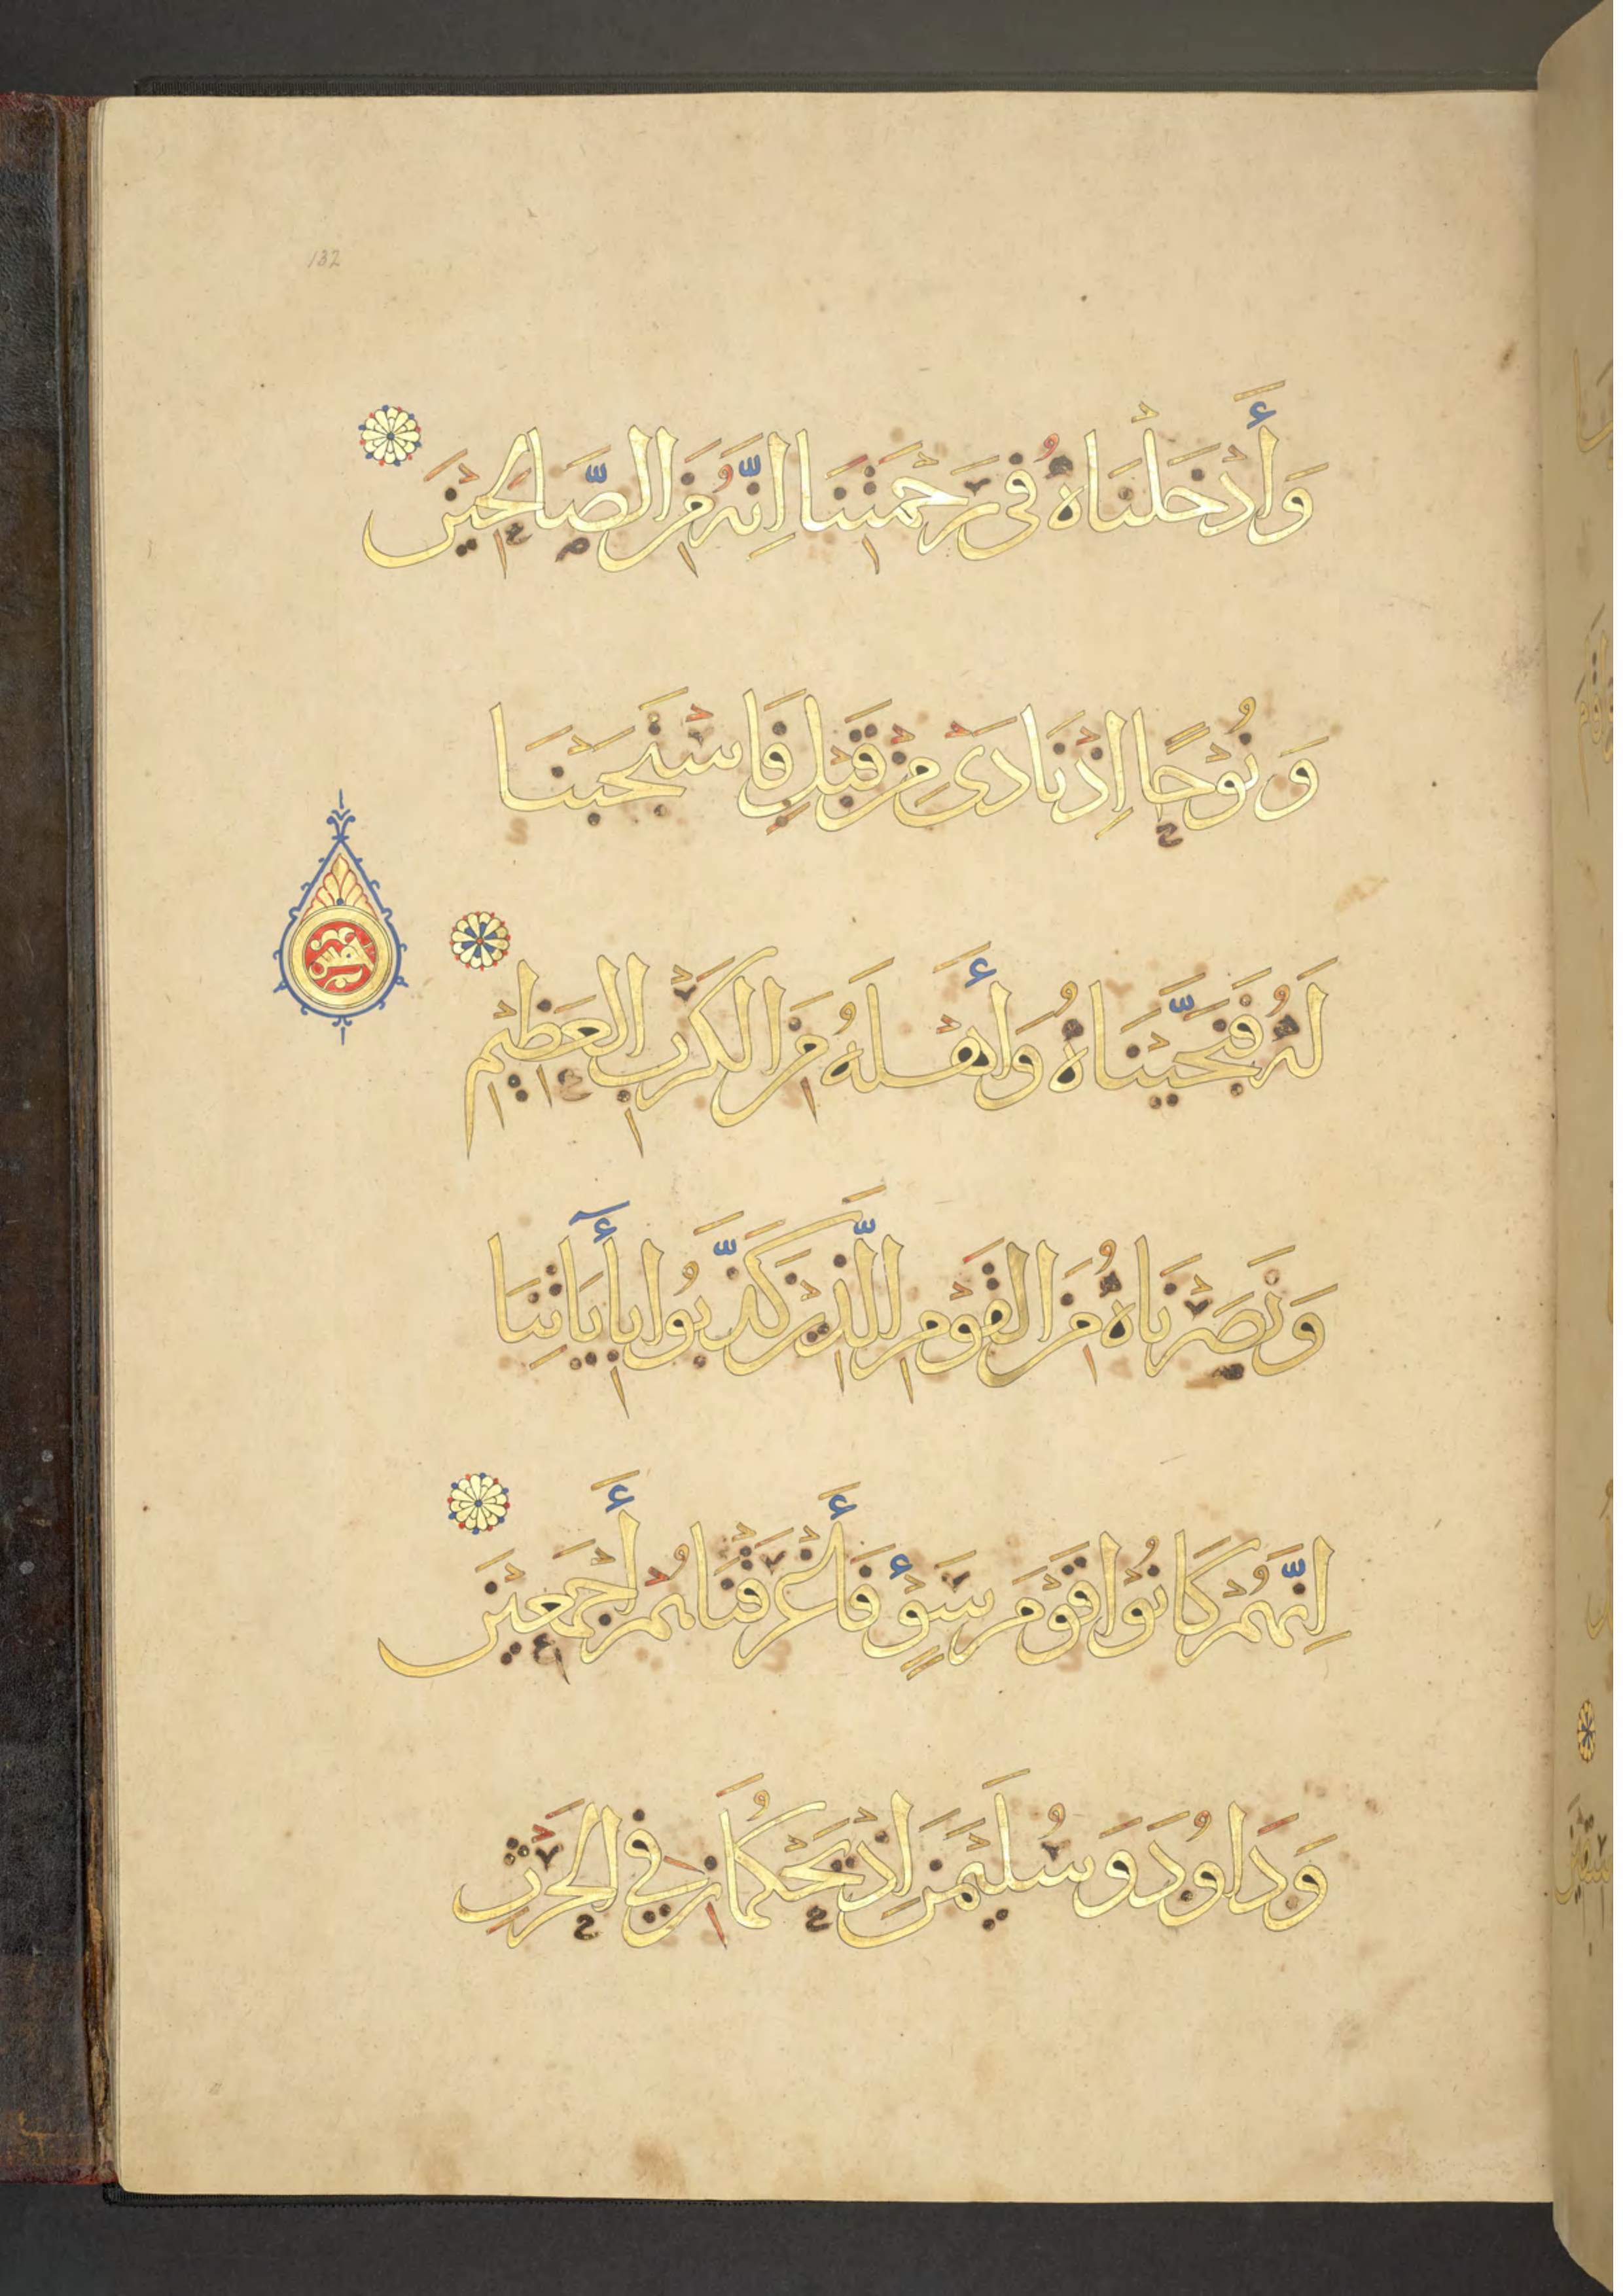 132
وَأَدْخَلْنَاهُ فِى رَحْمَتِنَا اِنَّهُ مِنَ الصَّالِحِيْنَ
وَنُوْحًا اِذْ نَادَىٰ مِنْ قَبْلُ فَاسْتَجَبْنَا
لَهُ فَنَجَّيْنَاهُ وَأَهْلَهُ مِنَ الْكَرْبِ الْعَظِيْمِ
وَنَصَرْنَاهُ مِنَ الْقَوْمِ الَّذِيْنَ كَذَّبُوا بِأٓيَاتِنَا
اِنَّهُمْ كَانُوْا قَوْمَ سَوْءٍ فَأَغْرَقْنَاهُمْ أَجْمَعِيْنَ
وَدَاوُدَ وَسُلَيْمٰنَ اِذْ يَحْكُمَانِ فِي الْحَرْثِ